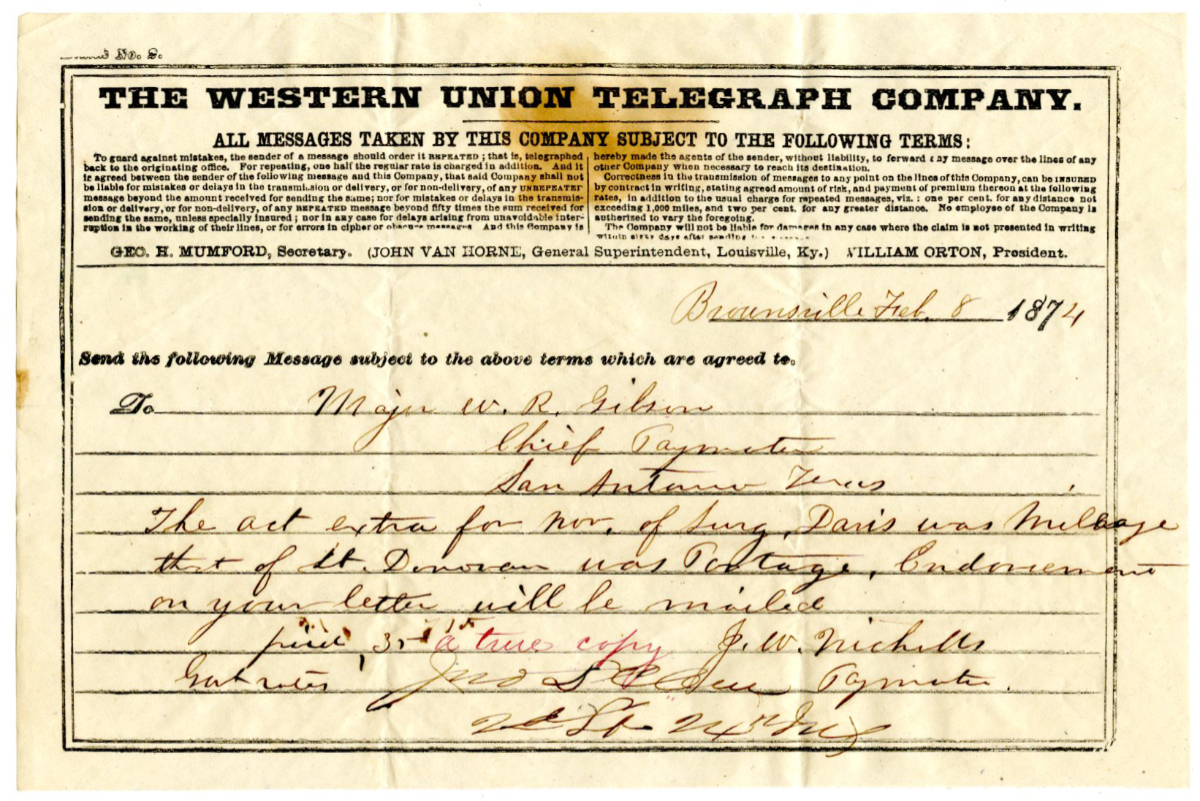 No. 2.
THE WESTERN UNION TELEGRAPH COMPANY.
ALL MESSAGES TAKEN BY THIS COMPANY SUBJECT TO THE FOLLOWING TERMS:
To guard against mistakes, the sender of a message should order it REPEATED; that is, telegraphed
back to the originating office. For repeating, one half the regular rate is charged in addition. And it
is agreed between the sender of the following message and this Company, that said Company shall not
be liable for mistakes or delays in the transmission or delivery, or for non-delivery, of any UNREPEATED
message beyond the amount received for sending the same; nor for mistakes or delays in the transmis-
sion or delivery, or for non-delivery, of any REPEATED message beyond fifty times the sum received for
sending the same, unless specially insured; nor in any case for delays arising from unavoidable inter-
ruption in the working of their lines, or for errors in cipher or obscure messages And this Company is
hereby made the agents of the sender, without liability, to forward any message over the lines of any
other Company when necessary to reach its destination.
Correctness in the transmission of messages to any point on the lines of this Company, can be INSURED
by contract in writing, stating agreed amount of risk, and payment of premium thereon at the following
rates, in addition to the usual charge for repeated messages, viz.: one per cent. for any distance not
exceeding 1,000 miles, and two per cent. for any greater distance. No employee of the Company is
authorized to vary the foregoing.
The Company will not be liable for damages in any case where the claim is not presented in writing
within sixty days after sending the message
GEO. H. MUMFORD, Secretary. (JOHN VAN HORNE, General Superintendent, Louisville, Ky.) WILLIAM ORTON, President.
Brownsville Feb. 8 1874
Send the following Message subject to the above terms which are agreed to.
To Major W. R. Gibson
Chief Paymster
San Antonio Texas
The act extra for Nov. of Surg. Davis was Mileage
that of Lt. Donovan was Postage, Endorsement
on your letter will be mailed
paid 35 a true copy J. W. Nicholls
Govt rates Jno Paymster.